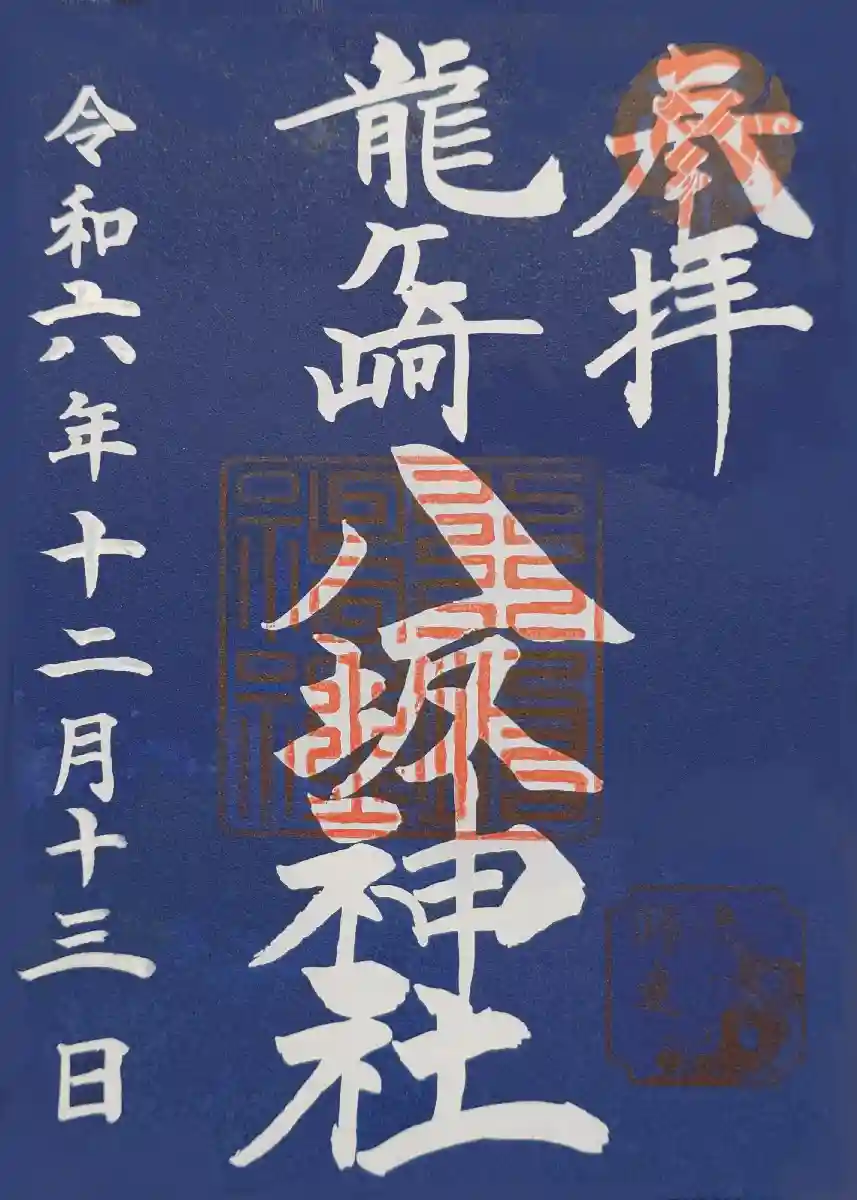 奉拝
龍ヶ崎八坂神社
令和六年十二月十三日